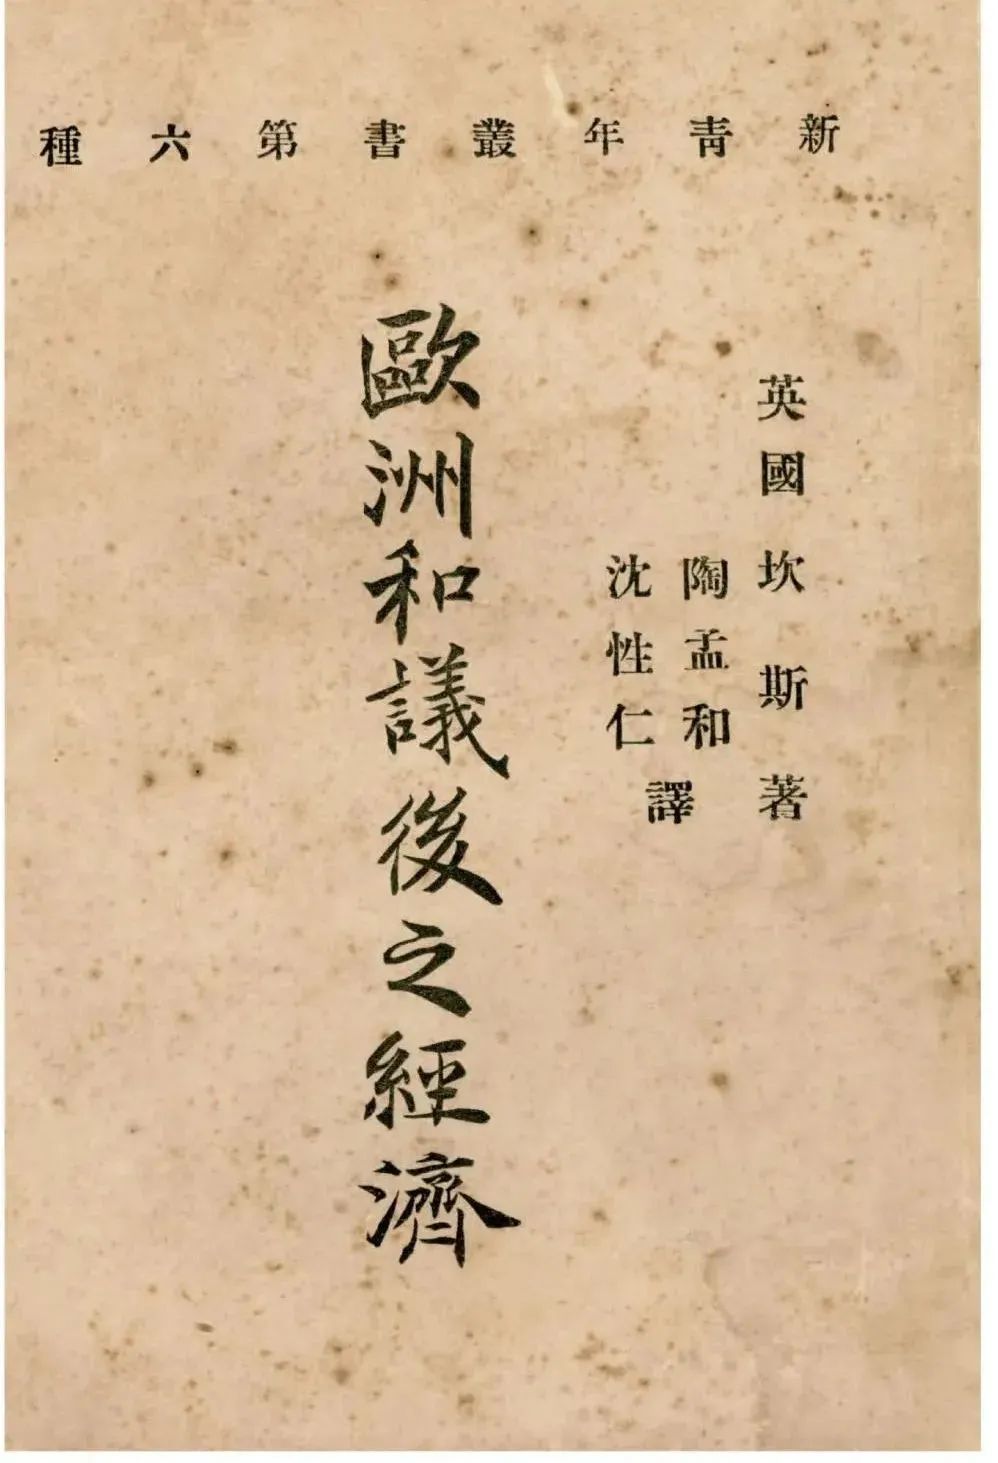 新青年叢書第六種
英國坎斯著
陶孟和
沈性仁
譯
歐洲和議後之經濟